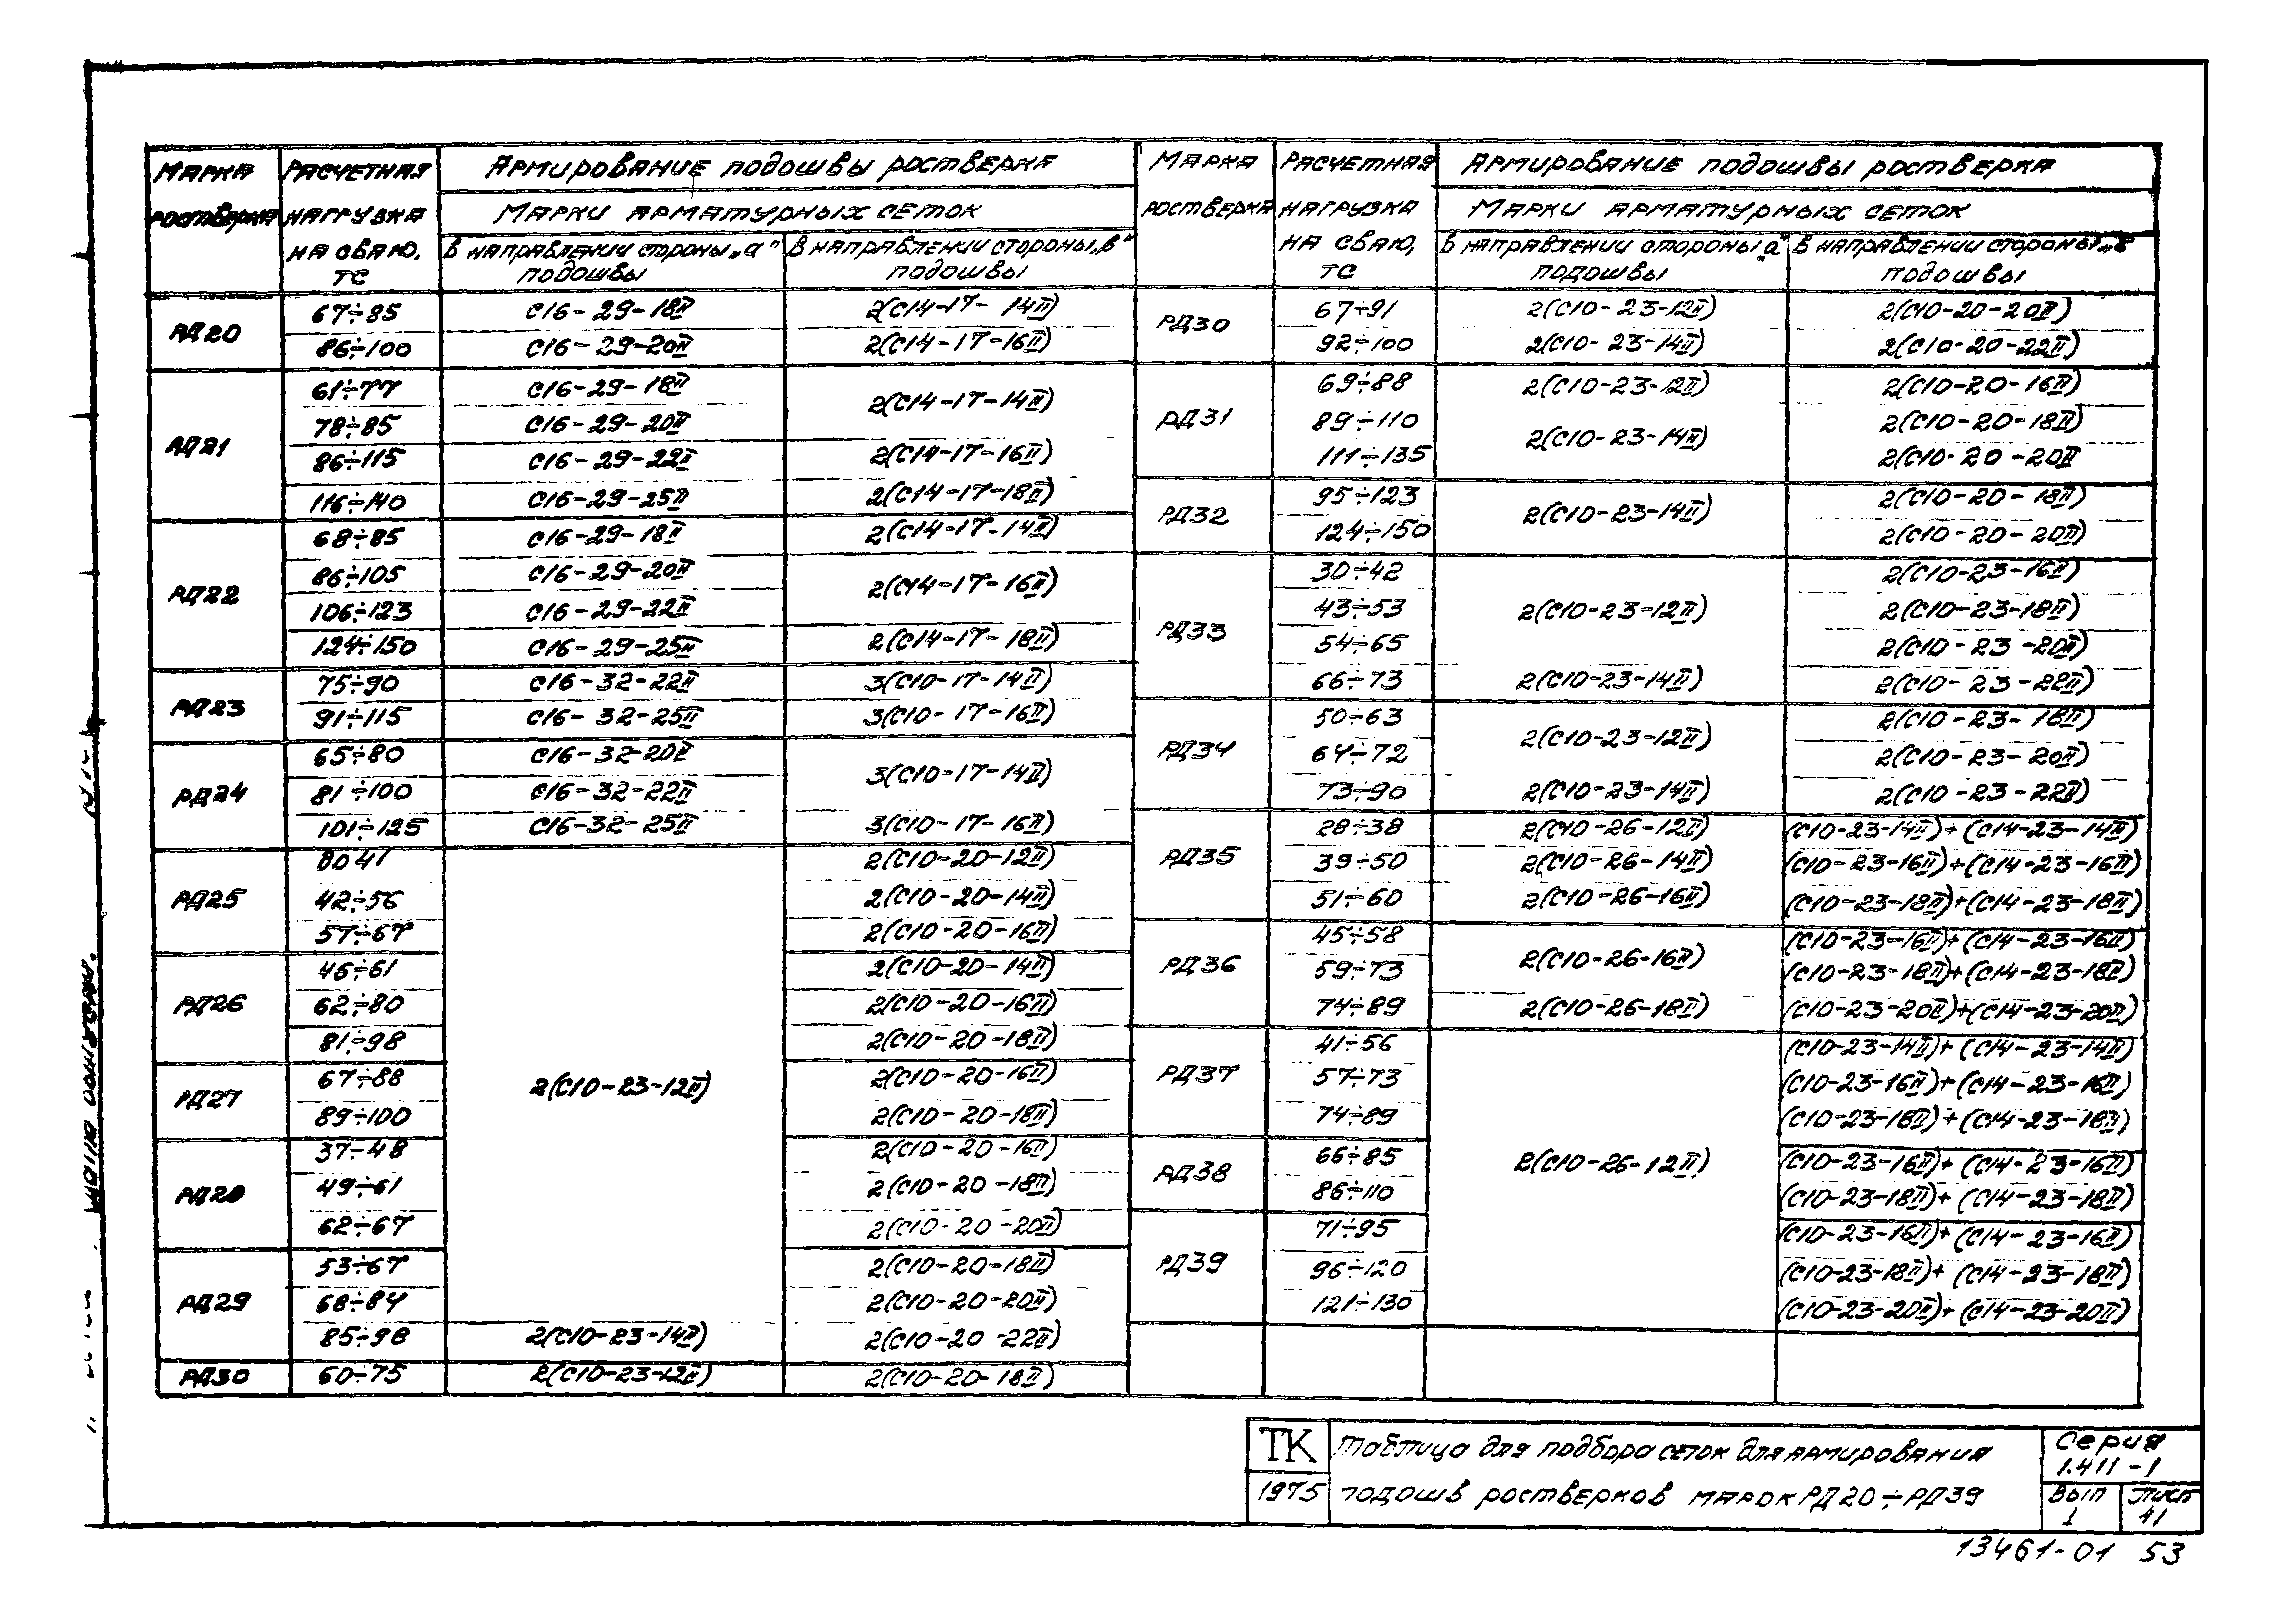 Марка ростверка | Расчетная нагрузка на сваю, тс | Армирование подошвы ростверка
Марки арматурных сеток
в направлении стороны „а" подошвы | в направлении стороны „в" подошвы
РД20 | 67÷85 | С16-29-18II | 2(С14-17-14II)
86÷100 | С16-29-20II | 2(С14-17-16II)
РД21 | 61÷77 | С16-29-18II | 2(С14-17-14II)
78÷85 | С16-29-20II
86÷115 | С16-29-22II | 2(С14-17-16II)
116÷140 | С16-29-25II | 2(С14-17-18II)
РД22 | 68÷85 | С16-29-18II | 2(С14-17-14II)
86÷105 | С16-29-20II | 2(С14-17-16II)
106÷123 | С16-29-22II
124÷150 | С16-29-25II | 2(С14-17-18II)
РД23 | 75÷90 | С16-32-22II | 3(С10-17-14II)
91÷115 | С16-32-25II | 3(С10-17-16II)
РД24 | 65÷80 | С16-32-20II | 3(С10-17-14II)
81÷100 | С16-32-22II
101÷125 | С16-32-25II | 3(С10-17-16II)
РД25 | до 41 | 2(С10-20-12II)
42÷56 | 2(С10-20-14II)
57÷67 | 2(С10-20-16II)
РД26 | 46÷61 | 2(С10-20-14II)
62÷80 | 2(С10-20-16II)
81÷98 | 2(С10-20-18II)
РД27 | 67÷88 | 2(С10-23-12II) | 2(С10-20-16II)
89÷100 | 2(С10-20-18II)
РД28 | 37÷48 | 2(С10-20-16II)
49÷61 | 2(С10-20-18II)
62÷67 | 2(С10-20-20II)
РД29 | 53÷67 | 2(С10-20-18II)
68÷84 | 2(С10-20-20II)
85÷98 | 2(С10-23-14II) | 2(С10-20-22II)
РД30 | 60÷75 | 2(С10-23-12II) | 2(С10-20-18II)
Марка ростверка | Расчетная нагрузка на сваю, тс | Армирование подошвы ростверка
Марки арматурных сеток
в направлении стороны „а" подошвы | в направлении стороны „в подошвы
РД30 | 67÷91 | 2(С10-23-12II) | 2(С10-20-20II)
92÷100 | 2(С10-23-14II) | 2(С10-20-22II)
РД31 | 69÷88 | 2(С10-23-12II) | 2(С10-20-16II)
89÷110 | 2(С10-23-14II) | 2(С10-20-18II)
111÷135 | 2(С10-20-20II
РД32 | 95÷123 | 2(С10-23-14II) | 2(С10-20-18II)
124÷150 | 2(С10-20-20II)
РД33 | 30÷42 | 2(С10-23-16II)
43÷53 | 2(С10-23-12II) | 2(С10-23-18II)
54÷65 | 2(С10-23-20II)
66÷73 | 2(С10-23-14II) | 2(С10-23-22II)
РД34 | 50÷63 | 2(С10-23-12II) | 2(С10-23-18II)
64÷72 | 2(С10-23-20II)
73÷90 | 2(С10-23-14II) | 2(С10-23-22II)
РД35 | 28÷38 | 2(С10-26-12II) | (С10-23-14II)+(С14-23-14II)
39÷50 | 2(С10-26-14II) | (С10-23-16II)+(С14-23-16II)
51÷60 | 2(С10-26-16II) | (С10-23-18II)+(С14-23-18II)
РД36 | 45÷58 | 2(С10-26-16II) | (С10-23-16II)+(С14-23-16II)
59÷73 | (С10-23-18II)+(С14-23-18II)
74÷89 | 2(С10-26-18II) | (С10-23-20II)+(С14-23-20II)
РД37 | 41÷56 | (С10-23-14II)+(С14-23-14II)
57÷73 | (С10-23-16II)+(С14-23-16II)
74÷89 | (С10-23-18II)+(С14-23-18II)
РД38 | 66÷85 | 2(С10-26-12II) | (С10-23-16II)+(С14-23-16II)
86÷110 | (С10-23-18II)+(С14-23-18II)
РД39 | 71÷95 | (С10-23-16II)+(С14-23-16II)
96÷120 | (С10-23-18II)+(С14-23-18II)
121÷130 | (С10-23-20II)+(С14-23-20II)
ТК
1975
Таблица для подбора сеток для армирования
подошв ростверков марок РД20÷РД39
Серия
1.411-1
Вып
1
Лист
41
13461-01 53